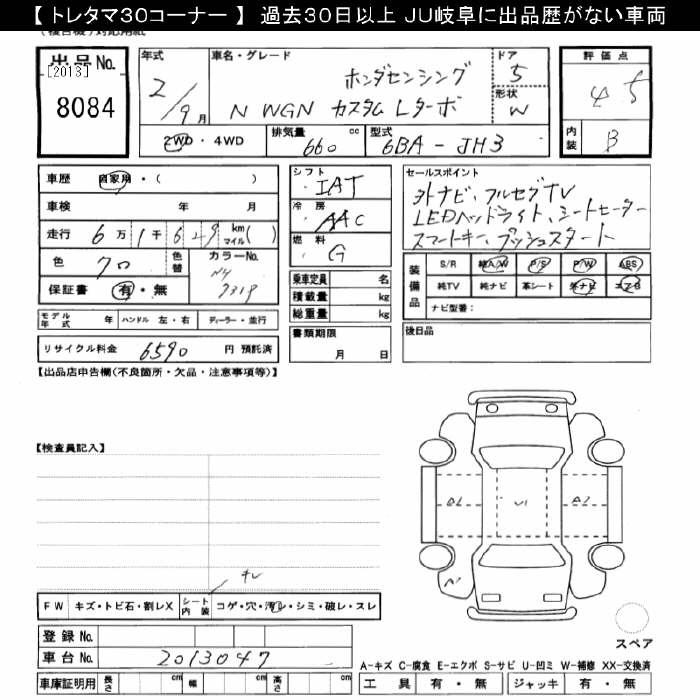 【 トレタマ30コーナー 】 過去30日以上 JU岐阜に出品歴がない車両
出品No. [2013] 8084
年式 2/9月
車名・グレード ホンダセンシング
N WGN カスタム Lターボ
ドア 5
形状 W
評価点 4 5
内装 B
2WD・4WD
排気量 660 cc
型式 6BA-JH3
車歴 自家用・( )
車検 年 月
走行 6万1千629 km マイル( )
色 クロ 色替 カラーNo. NH 731P
保証書 有・無
シフト IAT
冷房 AAC
燃料 G
乗車定員 名
積載量 kg
総重量 kg
書類期限 月 日
セールスポイント
外ナビ、フルセグTV
LEDヘッドライト、シートヒーター
スマートキー、プッシュスタート
装備品 S/R 純A/W P/S P/W ABS
純TV 純ナビ 革シート 外ナビ エアB
ナビ型番：
後日品
モデル年式 年 ハンドル 左・右 ディーラー・並行
リサイクル料金 6590 円 預託済
【出品店申告欄(不良箇所・欠品・注意事項等)】
【検査員記入】
A1 U1 A2
A1
キレ
FW キズ・トビ石・割レX シート内装 コゲ・穴・汚レ・シミ・破レ・スレ
登録No.
車台No. 2013047
車庫証明用 長さ cm 幅 cm 高さ cm
スペア
A-キズ C-腐食 E-エクボ S-サビ U-凹ミ W-補修 XX-交換済
工具 有・無 ジャッキ 有・無